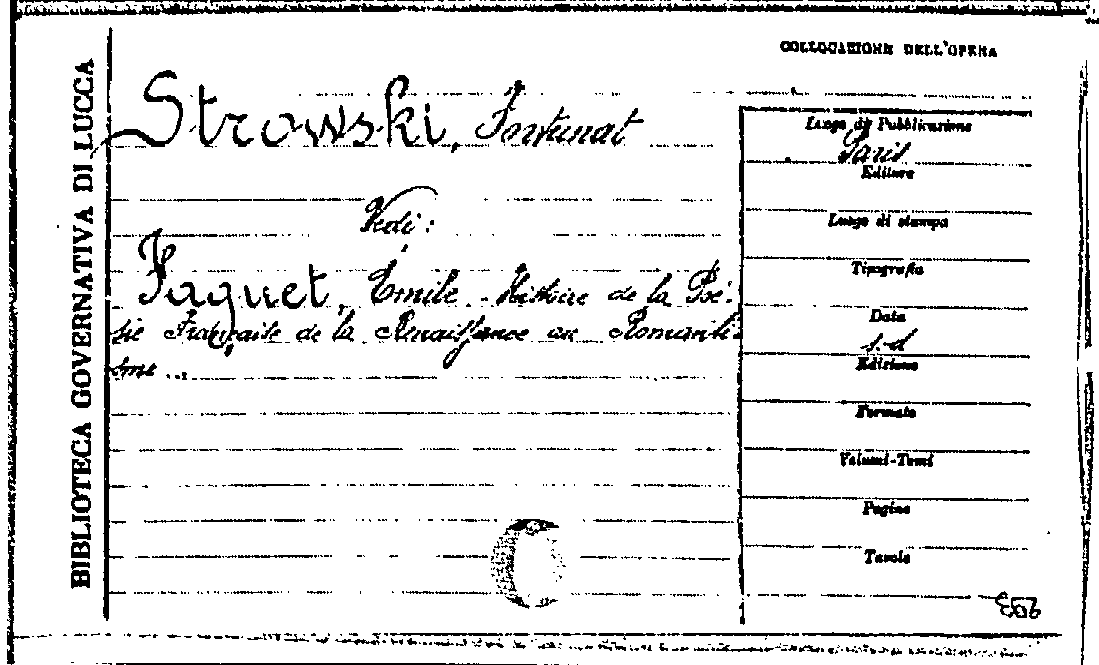 BIBLIOTECA GOVERNATIVA DI LUCCA
COLLOCAZIONE DELL'OPERA
Strowski, Fortunat
Vedi:
Faguet, Émile - Histoire de la Poé-
sie Française de la Renaissance au Romanti-
sme ...
Luogo di Pubblicazione
Paris
Editore
Luogo di stampa
Tipografia
Data
s.d
Edizione
Formato
Volumi-Tomi
Pagine
Tavole